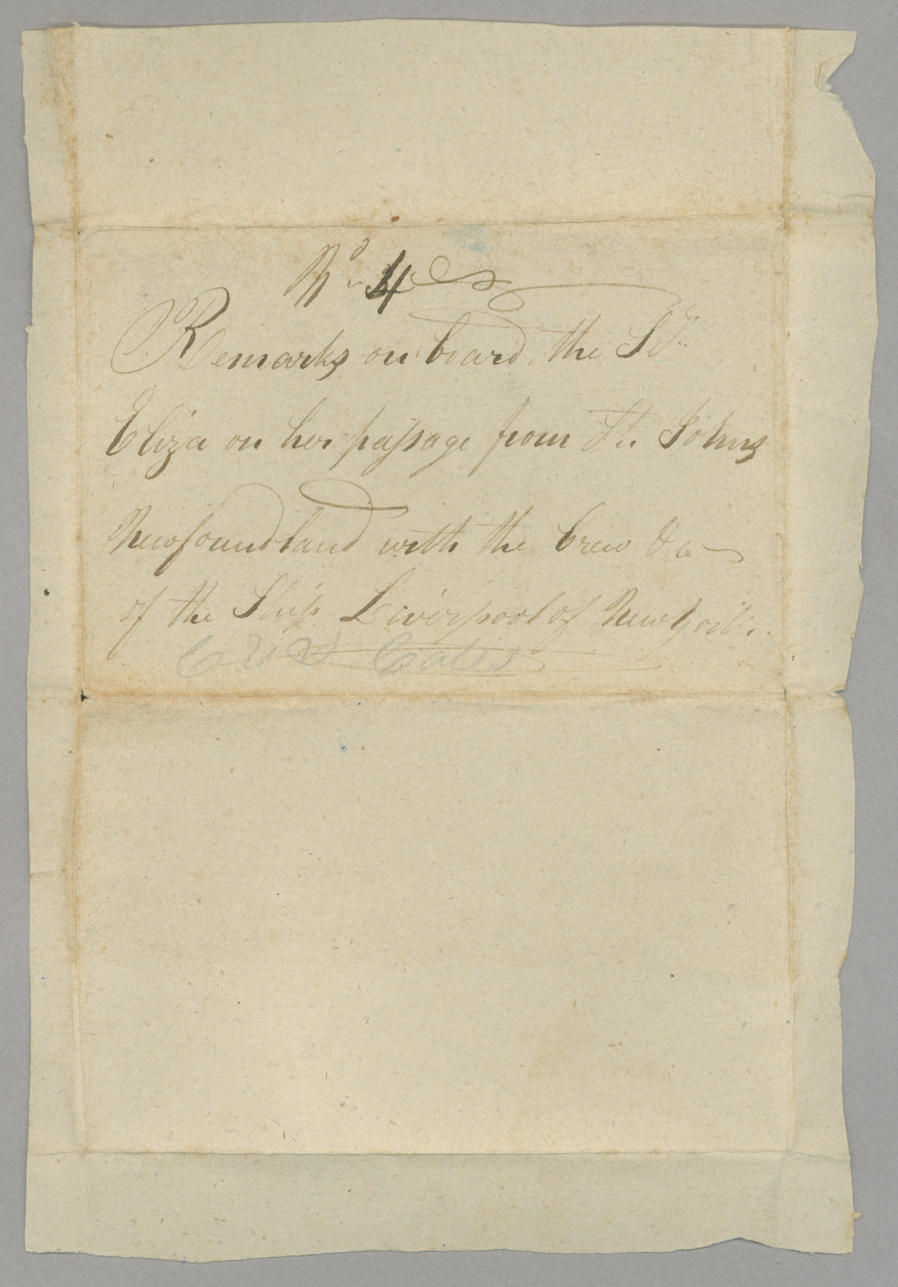 No 4
Remarks on board the Sch
Eliza on her passage from St. Johns
Newfoundland with the Crew &c
of the Ship Liverpool of New York.
Coles